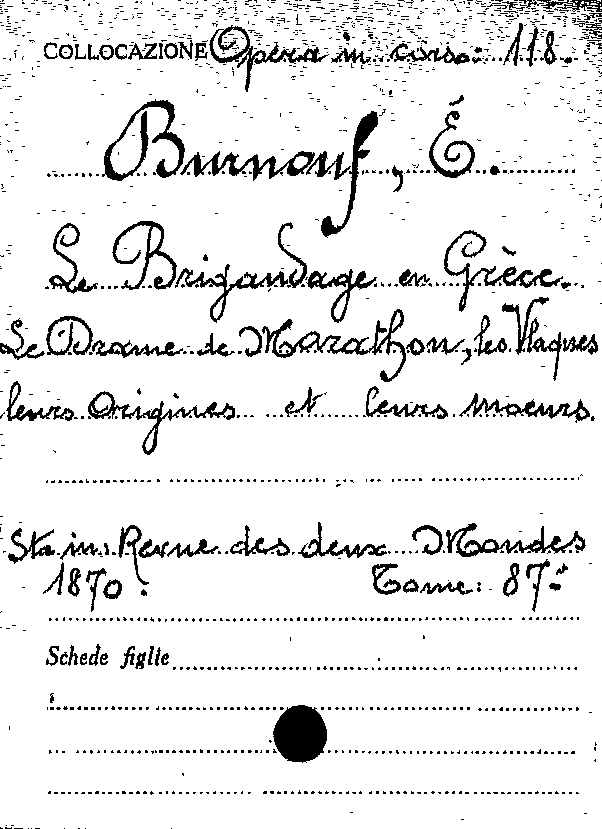 COLLOCAZIONE Opera in corso: 118.
Burnouf, É.
Le Brigandage en Grèce.
Le Drame de Marathon, les Vlaques
leurs Origines et leurs moeurs.
Sta in: Revue des deux Mondes
1870. Tome: 87
Schede figlie